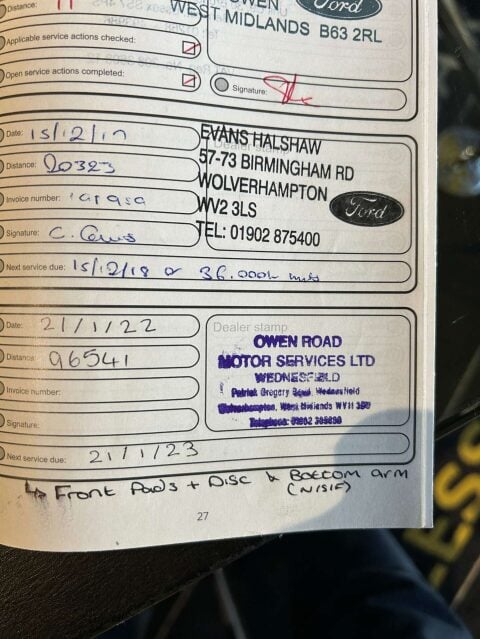 Distance:
OWEN
Ford
WEST MIDLANDS B63 2RL
Applicable service actions checked:
Open service actions completed:
Signature:
Date: 15/12/17
Distance: 20323
Invoice number:
Signature: C. Lewis
Next service due: 15/12/18 or 36.000k miles
Dealer stamp
EVANS HALSHAW
57-73 BIRMINGHAM RD
WOLVERHAMPTON
WV2 3LS
TEL: 01902 875400
Ford
Date: 21/1/22
Distance: 96541
Invoice number:
Signature:
Next service due: 21/1/23
Dealer stamp
OWEN ROAD
MOTOR SERVICES LTD
WEDNESFIELD
Patrick Gregory Road, Wednesfield
Wolverhampton, West Midlands WV11
Telephone: 01902
↳ Front Pads + Disc & Bottom arm
(N/S/F)
27